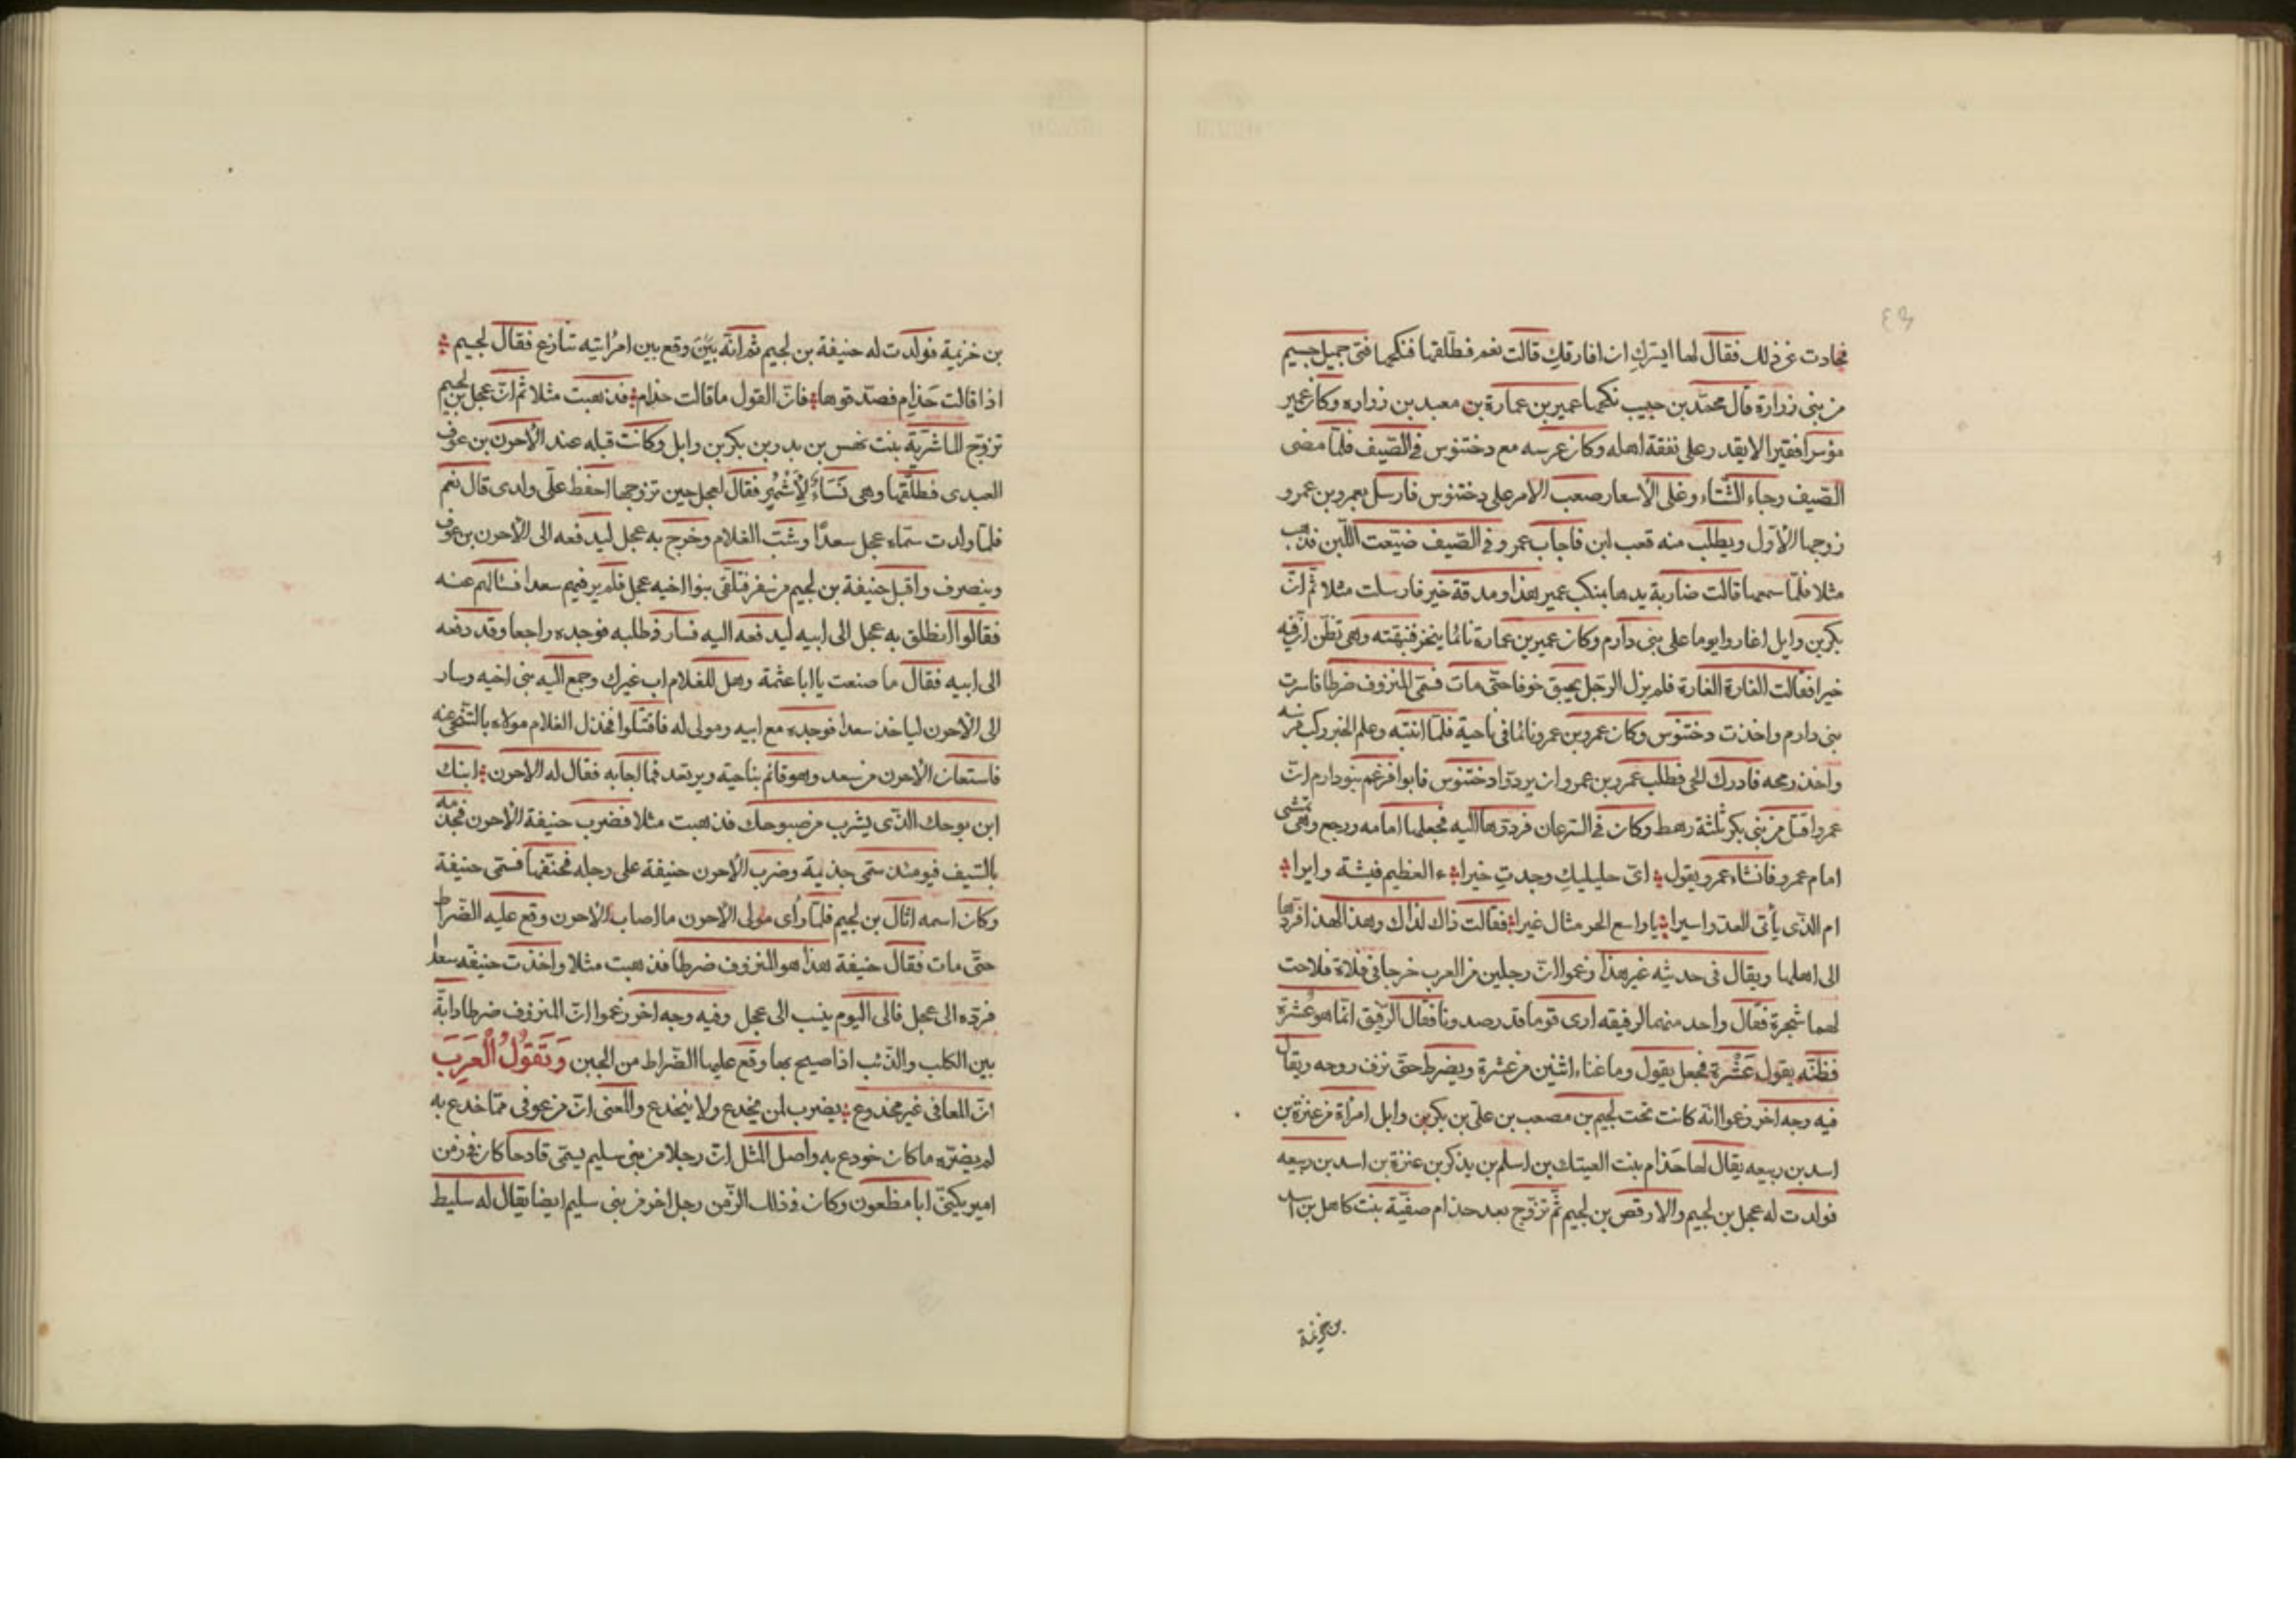 ٤٣
فحادت عن ذلك فقال لها ايسرك ان افارقك قالت نعم فطلقها فنكحها فتى جميل جسيم
من بنى زرارة قال محمد بن حبيب نكحها عمير بن عمارة بن معبد بن زراره وكان عمير
مؤسرا فقيرا لا يقدر على نفقة اهله وكان عرسه مع دختنوس فى الصيف فلما مضى
الصيف وجاء الشتاء وغلى الاسعار صعب الامر على دختنوس فارسل بعمرو بن عمرو
زوجها الاول ويطلب منه قعب لبن فاجاب عمرو فى الصيف ضيعت اللبن فذهب
مثلا فلما سمعها قالت ضاربة يدها بمنكب عمير هذا ومذقة خير فارسلت مثلا ثم ان
بكر بن وايل اغاروا يوما على بنى دارم وكان عمير بن عمارة نائما ينخر فنبهته وهى تظن ان فيه
خيرا فقالت الغارة الغارة فلم يزل الرجل يحبق خوفا حتى مات فسمى المنزوف ضرطا فاسرت
بنى دارم واخذت دختنوس وكان عمرو بن عمرو نائما فى ناحية فلما انتبه وعلم الخبر ركب فرسه
واخذ رمحه فادرك الحى فطلب عمرو بن عمرو ان يردوا دختنوس فابوا فزعم بنو دارم ان
عمروا قتل من بنى بكر ثلثة رهط وكان فى السرعان فردوها اليه فجعلها امامه ورجع وهى تمشى
امام عمرو فانشاء عمرو يقول اى حليليك وجدت خيرا ء العظيم فيشة وايرا
ام الذى يأتى العدو اسيرا يا واسع الحر مثال غيرا فقالت ذاك لذاك وهذا لهذا فردها
الى اهلها ويقال فى حديثه غير هذا زعموا ان رجلين من العرب خرجا فى فلاة فلاحت
لهما شجرة فقال واحد منهما لرفيقه ارى قوما قد رصدونا فقال الرفيق انما هو عشرة
فظنه يقول عشرة فجعل يقول وما غناء اثنين من عشرة ويضرط حتى نزف روحه ويقال
فيه وجه اخر زعموا انه كانت تحت لجيم بن مصعب بن على بن بكر بن وايل امرأة من عنزة بن
اسد بن ربيعه يقال لها حذام بنت العيتك بن اسلم بن يذكر بن عنزة بن اسد بن ربيعه
فولدت له عجل بن لجيم والارقص بن لجيم ثم تزوج بعد حذام صفية بنت كاهل بن اسد
بن خزيمة
بن خزيمة فولدت له حنيفة بن لجيم ثم انه بين وقع بين امرأتيه تنازع فقال لجيم
اذا قالت حذام فصدقوها فان القول ما قالت حذام فذهبت مثلا ثم ان عجل بن لجيم
تزوج الماشرية بنت نهس بن بدر بن بكر بن وايل وكانت قبله عند الاحون بن عوف
العبدى فطلقها وهى نساء لاشهر فقال لعجل حين تزوجها احفظ على ولدى قال نعم
فلما ولدت سماه عجل سعدا وشب الغلام وخرج به عجل ليدفعه الى الاحون بن عوف
وينصرف واقبل حنيفة بن لجيم من سفر فتلقى بنوا اخيه عجل فلم ير فيهم سعدا فسالهم عنه
فقالوا انطلق به عجل الى ابيه ليدفعه اليه فسار فى طلبه فوجده راجعا وقد دفعه
الى ابيه فقال ما صنعت يا ابا عثمة وهل للغلام اب غيرك وجمع اليه بنى اخيه وسار
الى الاحون لياخذ سعدا فوجده مع ابيه ومولى له فاقتتلوا فخذل الغلام مولاه بالتنحى عنه
فاستعان الاحون من سعد وهو قائم بناحية ويرتعد فما اجابه فقال له الاحون ابنك
ابن بوحك الذى يشرب من صبوحك فذهبت مثلا فضرب حنيفة الاحون فجذمه
بالسيف فيومئذ سمى جذيمة وضرب الاحون حنيفة على رجله فحنفها فسمى حنيفة
وكان اسمه اثال بن لجيم فلما رأى مولى الاحون ما اصاب الاحون وقع عليه الضراط
حتى مات فقال حنيفة هذا هو المنزوف ضرطا فذهبت مثلا واخذت حنيفه سعدا
فرده الى عجل فالى اليوم ينسب الى عجل وفيه وجه اخر زعموا ان المنزوف ضرطا دابة
بين الكلب والذئب اذا صيح بها وقع عليها الضراط من الجبن وَتَقُولُ الْعَرَبُ
ان المعافى غير مخدوع يضرب لمن يخدع ولا ينخدع والمعنى ان من عوفى مما خدع به
لم يضره ما كان خودع به واصل المثل ان رجلا من بنى سليم يسمى قادحا كان فى زمن
امير يكنى ابا مظعون وكان فى ذلك الزمن رجل اخر من بنى سليم ايضا يقال له سليط